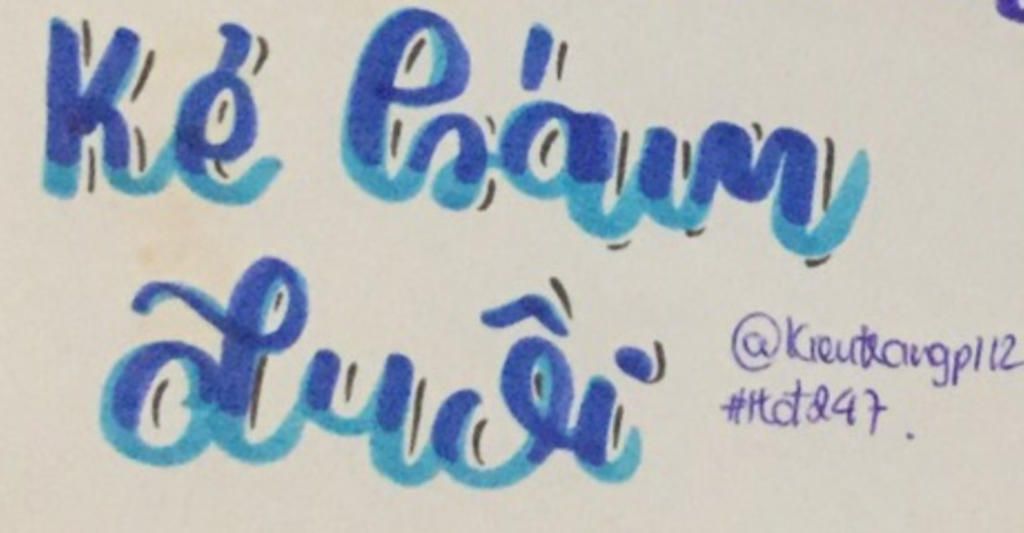 Kẻ bám
đuôi
@Kieutrangp112